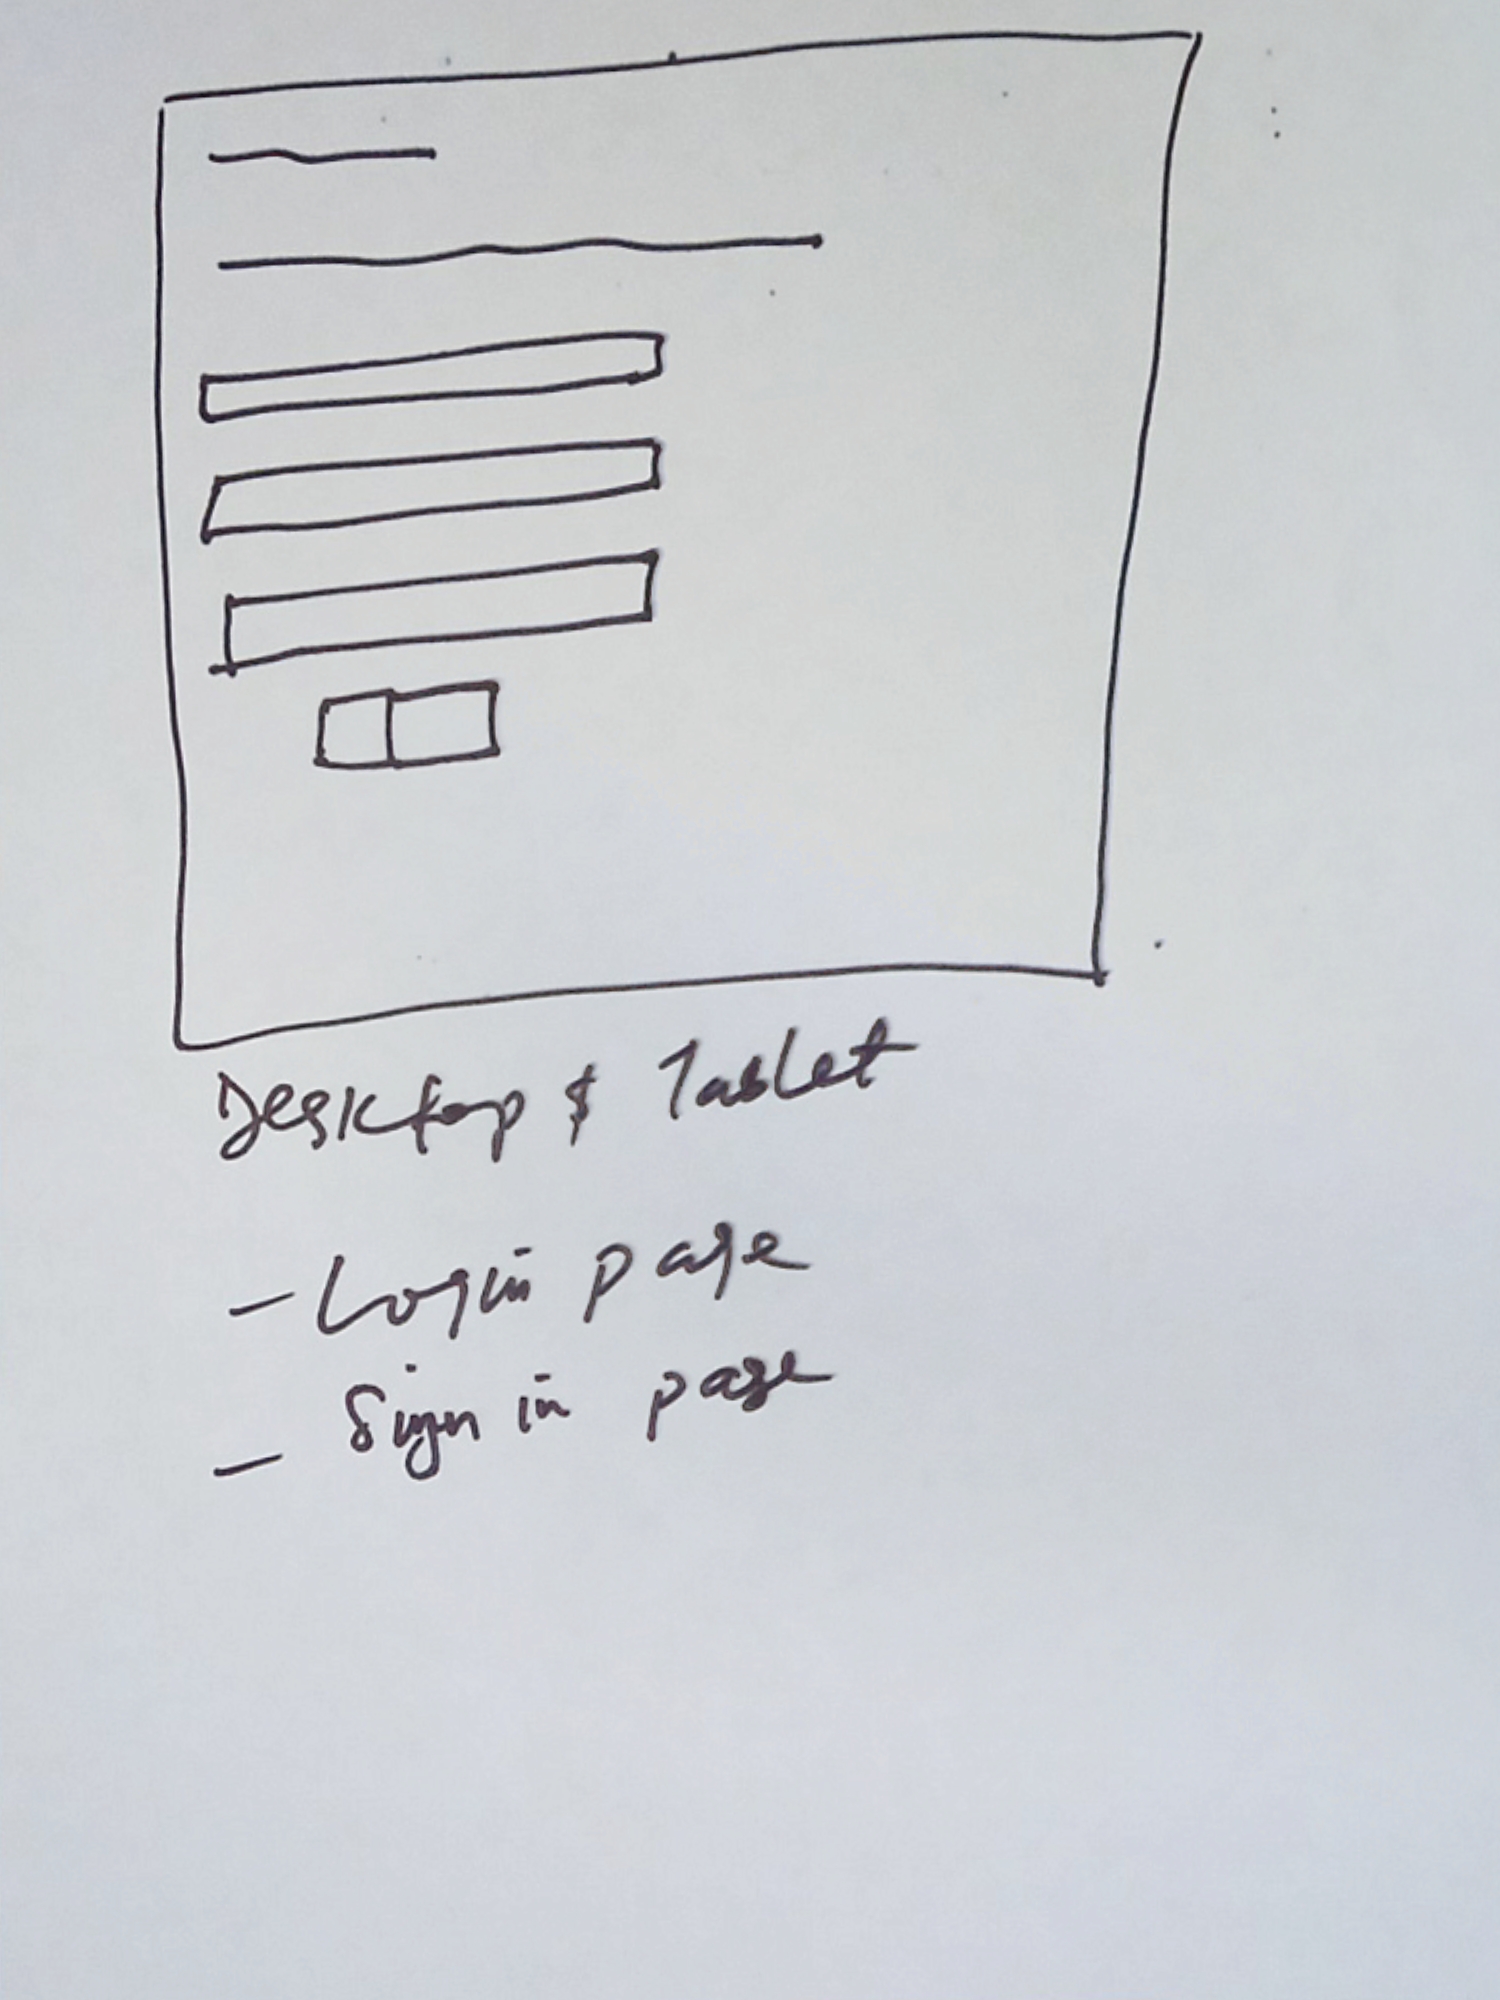 Desktop & Tablet
- Login page
- Sign in page